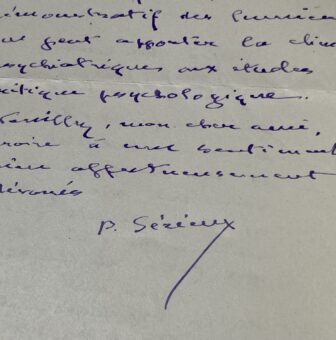 démonstratif des lumières
que peut apporter la clini
psychiatriques aux études
critique psychologique..
Veuillez, mon cher ami,
croire à mes sentiments
bien affectueusement
dévoués
P. Sérieux